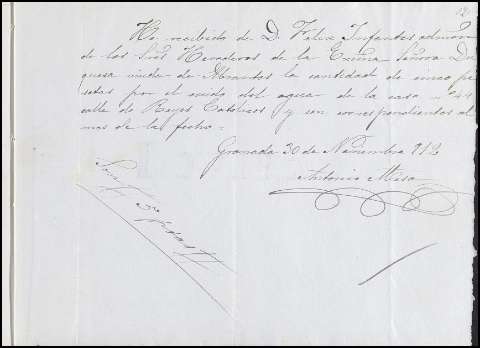 12
He recibido de D. Felix Infantes admor
de los Sres Herederos de la Excma Señora Du
quesa viuda de Abrantes la cantidad de cinco pe
setas por el cuido del agua de la casa nº 44
calle de Reyes Católicos y son correspondientes al
mes de la fecha =
Granada 30 de Noviembre 912
Antonio Mesa
Son 5 pesetas